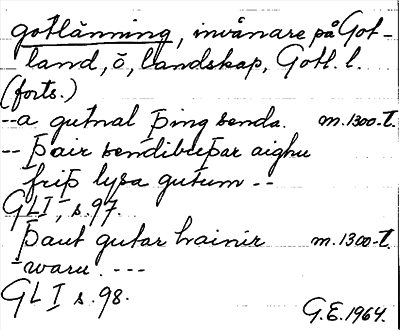 gotlänning, invånare på Got-
land, ö, landskap, Gotl. l.
(forts.)
--a gutnal þing senda. m. 1300-t.
-- þair sendibuþar aighu
friþ lysa gutum --
GLI, s. 97.
þaut gutar hainir m. 1300-t.
waru. ---
GLI s. 98.
G.E. 1964.